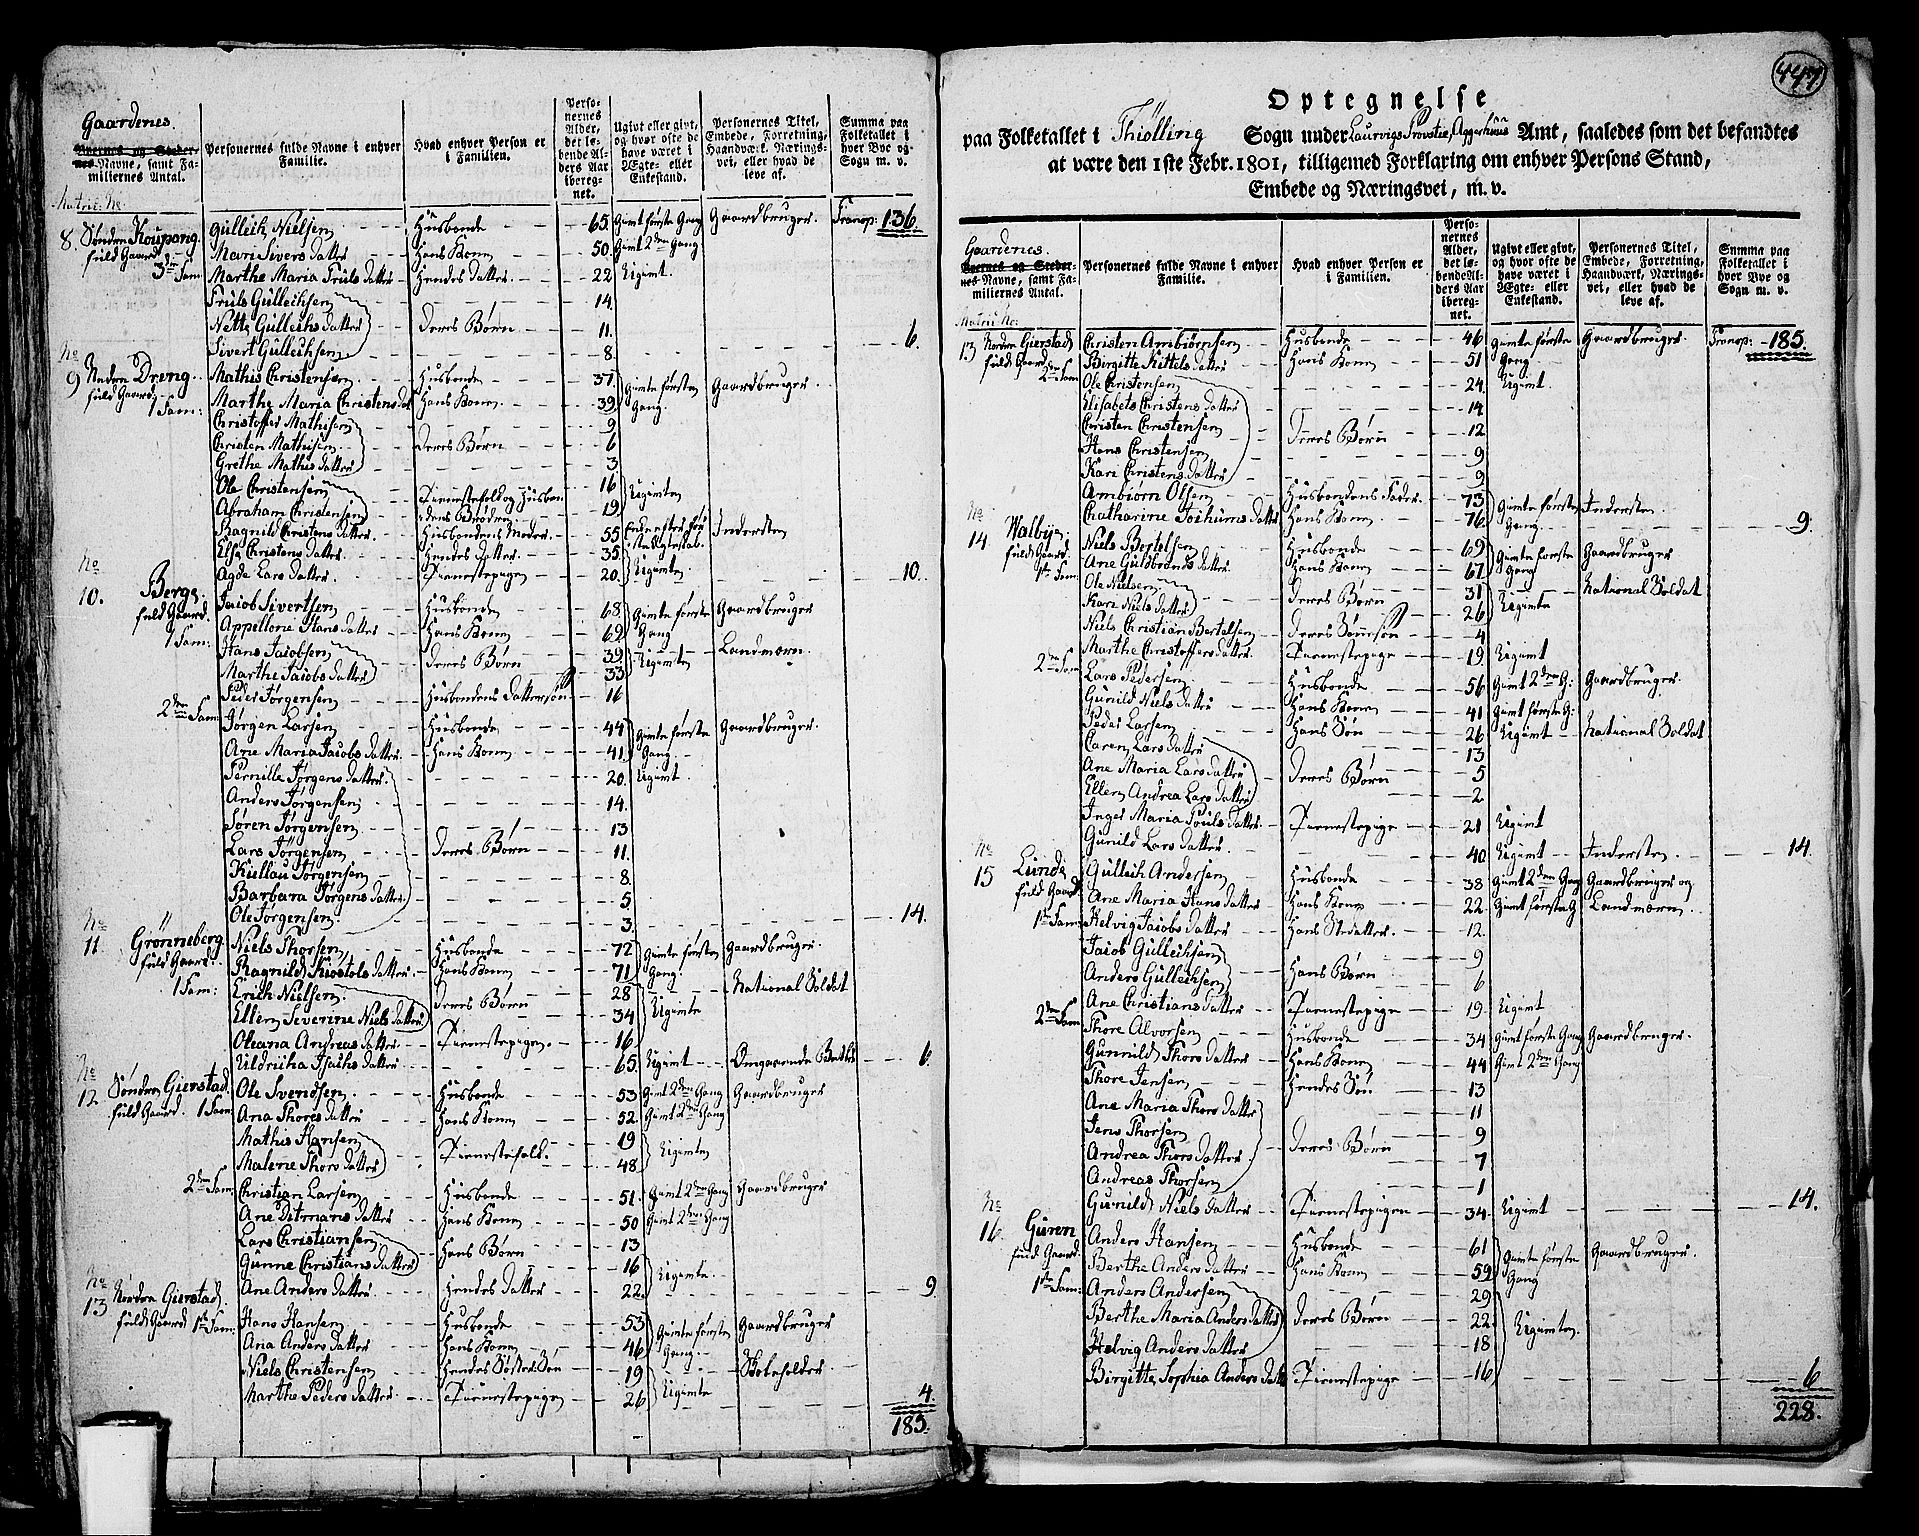 Gaardenes
Byernes og Stedernes Navne, samt Familiernes Antal.
Personernes fulde Navne i enhver Familie.
Hvad enhver Person er i Familien.
Personernes Alder, det løbende Alders Aar iberegnet.
Ugivt eller givt, og hvor ofte de have været i Ægte- eller Enkestand.
Personernes Titel, Embede, Forretning, Haandværk, Næringsvei, eller hvad de leve af.
Summa paa Folketallet i hver Bye og Sogn m. v.
Matric. No.
8 Søndre Koupang. Gulleich Nielsen Husbonde 65. Givt første Gang Gaardbruger. Transp: 136.
fuld Gaard Mari Sivers datter Hans Kone 50. Givt 2den Gang
3de Fam: Marthe Maria Truls datter Hendes Datter 22 Ugivt.
Truls Gulleichsen 14.
Nette Gulleichs datter Deres Børn 11.
Sivert Gulleichsen 8. 6.
No 9 Nedre Dreng. Mathis Christensen Husbonde 37. Givte første Gang. Gaardbruger
fuld Gaard Marthe Maria Christens dat Hans Kone 39.
1 Fam: Christoffer Mathisen 9
Christen Mathisen Deres Børn 6
Grethe Mathis datter 3
Ole Christensen Tienestefolk og Husbondens Brødre 16 Ugivte
Abraham Christensen 19
Ragnild Christens datter Husbondens Moder 55 Indersten
Else Christens datter Hendes Datter 35. Ugivte
Agde Lars datter Tienestepige 20. 10.
No 10. Berge. Jacob Sivertsen Husbonde 68 Givte første Gang Gaardbruger
fuld Gaard. Appellone Hans datter Hans Kone 69
1 Fam: Hans Jacobsen Deres Børn 39 Ugivte Landmærn.
Marthe Jacobs datter 33
Peder Jørgensen Husbondens Dattersøn 16
2den Fam: Jørgen Larsen Husbonde 44 Givte første Gang Gaardbruger
Ane Maria Jacobs datter Hans Kone 41.
Pernille Jørgens datter 20. Ugivt.
Anders Jørgensen 14.
Søren Jørgensen 13
Lars Jørgensen Deres Børn 11.
Jørgensen 8.
Barbara Jørgens datter 5.
Ole Jørgensen 3. 14.
No 11. Grønneberg. Niels Thorsen Husbonde 72 Givte første Gang Gaardbruger
fuld Gaard. Ragnild Kiostols datter Hans Kone 71
1 Fam: Erich Nielsen Deres Børn 28 Ugivte National Soldat
Ellen Sevrine Niels datter 34
Oleana Andreas datter Tienestepige 16
Uldricha datter 65. Ugivt Omgaaende 6.
No 12 Søndre Gierstad. Ole Svendsen Husbonde 53 Givt 2den Gang Gaardbruger
fuld Gaard. 1 Fam Ana Thores datter Hans Kone 52. Givt 2den Gang
Mathis Hansen Tienestefolk. 19 Ugivte
Malene Thors datter 48.
2den Fam: Christian Larsen Husbonde 51. Givt 2den Gang Gaardbruger
Ane Ditmans datter Hans Kone 50 Givt 2den Gang
Lars Christiansen Hans Børn 13
Gunne Christians datter 16 Ugivte
Ane Anders datter Hendes Datter 22. 9
No 13 Nordre Gierstad. Hans Hansen Husbonde 53 Givte første Gang. Gaardbruger
fuld Gaard 1te Fam: Ana Anders datter Hans Kone 46
Niels Christensen Hendes Søster Søn 19 Ugivte Skoleholder
Marthe Peders datter Tienestepige 26 4.
185.
447
Optegnelse
paa Folketallet i Thiølling Sogn under Laurvigs Provstie, Aggershuus Amt, saaledes som det befandtes
at være den 1ste Febr. 1801, tilligemed Forklaring om enhver Persons Stand,
Embede og Næringsvei, m. v.
Gaardenes
Byernes og Stedernes Navne, samt Familiernes Antal.
Personernes fulde Navne i enhver Familie.
Hvad enhver Person er i Familien.
Personernes Alder, det løbende Alders Aar iberegnet.
Ugivt eller givt, og hvor ofte de have været i Ægte- eller Enkestand.
Personernes Titel, Embede, Forretning, Haandværk, Næringsvei, eller hvad de leve af.
Summa paa Folketallet i hver Bye og Sogn m. v.
Matric. No:
13 Nordre Gierstad Christen Ambiørnsen Husbonde 46 Givte første Gang Gaardbruger Transp: 185.
fuld Gaard Birgitte Kittels datter Hans Kone 51
2den Fam Ole Christensen 24. Ugivt.
Elisabets Christens datter 14
Christen Christensen Deres Børn 12
Hans Christensen 9
Kari Christens datter 9
Ambiørn Olsen Husbondens Fader 73 Givte første Gang. Indersten
Chatharine Jochums datter Hans Kone 76. 9.
No 14. Walbye. Niels Bertelsen Husbonde 69 Givte første Gang Gaardbruger
fuld Gaard. Ane Guldbrands datter Hans Kone 67
1te Fam: Ole Nielsen Deres Børn 31 Ugivte National Soldat
Kari Niels datter 26
Niels Christian Bertelsen Deres Sønnesøn 4
Marthe Christoffers datter Tienestepige 19. Ugivt
2den Fam Lars Pedersen Husbonde 56 Givt 2den G: Gaardbruger
Gunild Niels datter Hans Kone 41 Givt første G:
Peder Larsen Hans Søn 26 Ugivt National Soldat
Caren Lars datter 13
Ane Maria Lars datter Deres Børn 5
Ellen Andrea Lars datter 2
Inger Maria Pouls datter Tienestepige 21 Ugivt
Gunild Lars datter. 40 Ugivt Indersten 14.
No 15 Lunde Gulleich Andersen Husbonde 38 Givt 2den Gang Gaardbruger og
fuld Gaard Ane Maria Hans datter Hans Kone 22. Givt første G Landmærn.
1te Fam: Helvig Jacobs datter Hans Stedatter 12.
Jacob Gulleichsen 9
Anders Gulleichsen Hans Børn 6
Ane Christians datter Tienestepige 19. Ugivt
2den Fam Thore Alvorsen Husbonde 34 Givt første Gang Gaardbruger
Gunnild Thors datter Hans Kone 44 Givt 2den Gang
Thore Jensen Hendes Søn 13
Ane Maria Thors datter 11
Jens Thorsen 9
Andrea Thors datter Deres Børn 7
Andreas Thorsen 1
Gunild Niels datter Tienestepige 34. Ugivt 14.
No 16. Guren Anders Hansen Husbonde 61 Givte første Gang Gaardbruger
fuld Gaard. Berthe Anders datter Hans Kone 59
1te Fam: Anders Andersen 29
Berthe Maria Anders datter Deres Børn 22. Ugivte
Helvig Anders datter 18
Birgitte Sophia Anders datt Tienestepige 16 6
228.